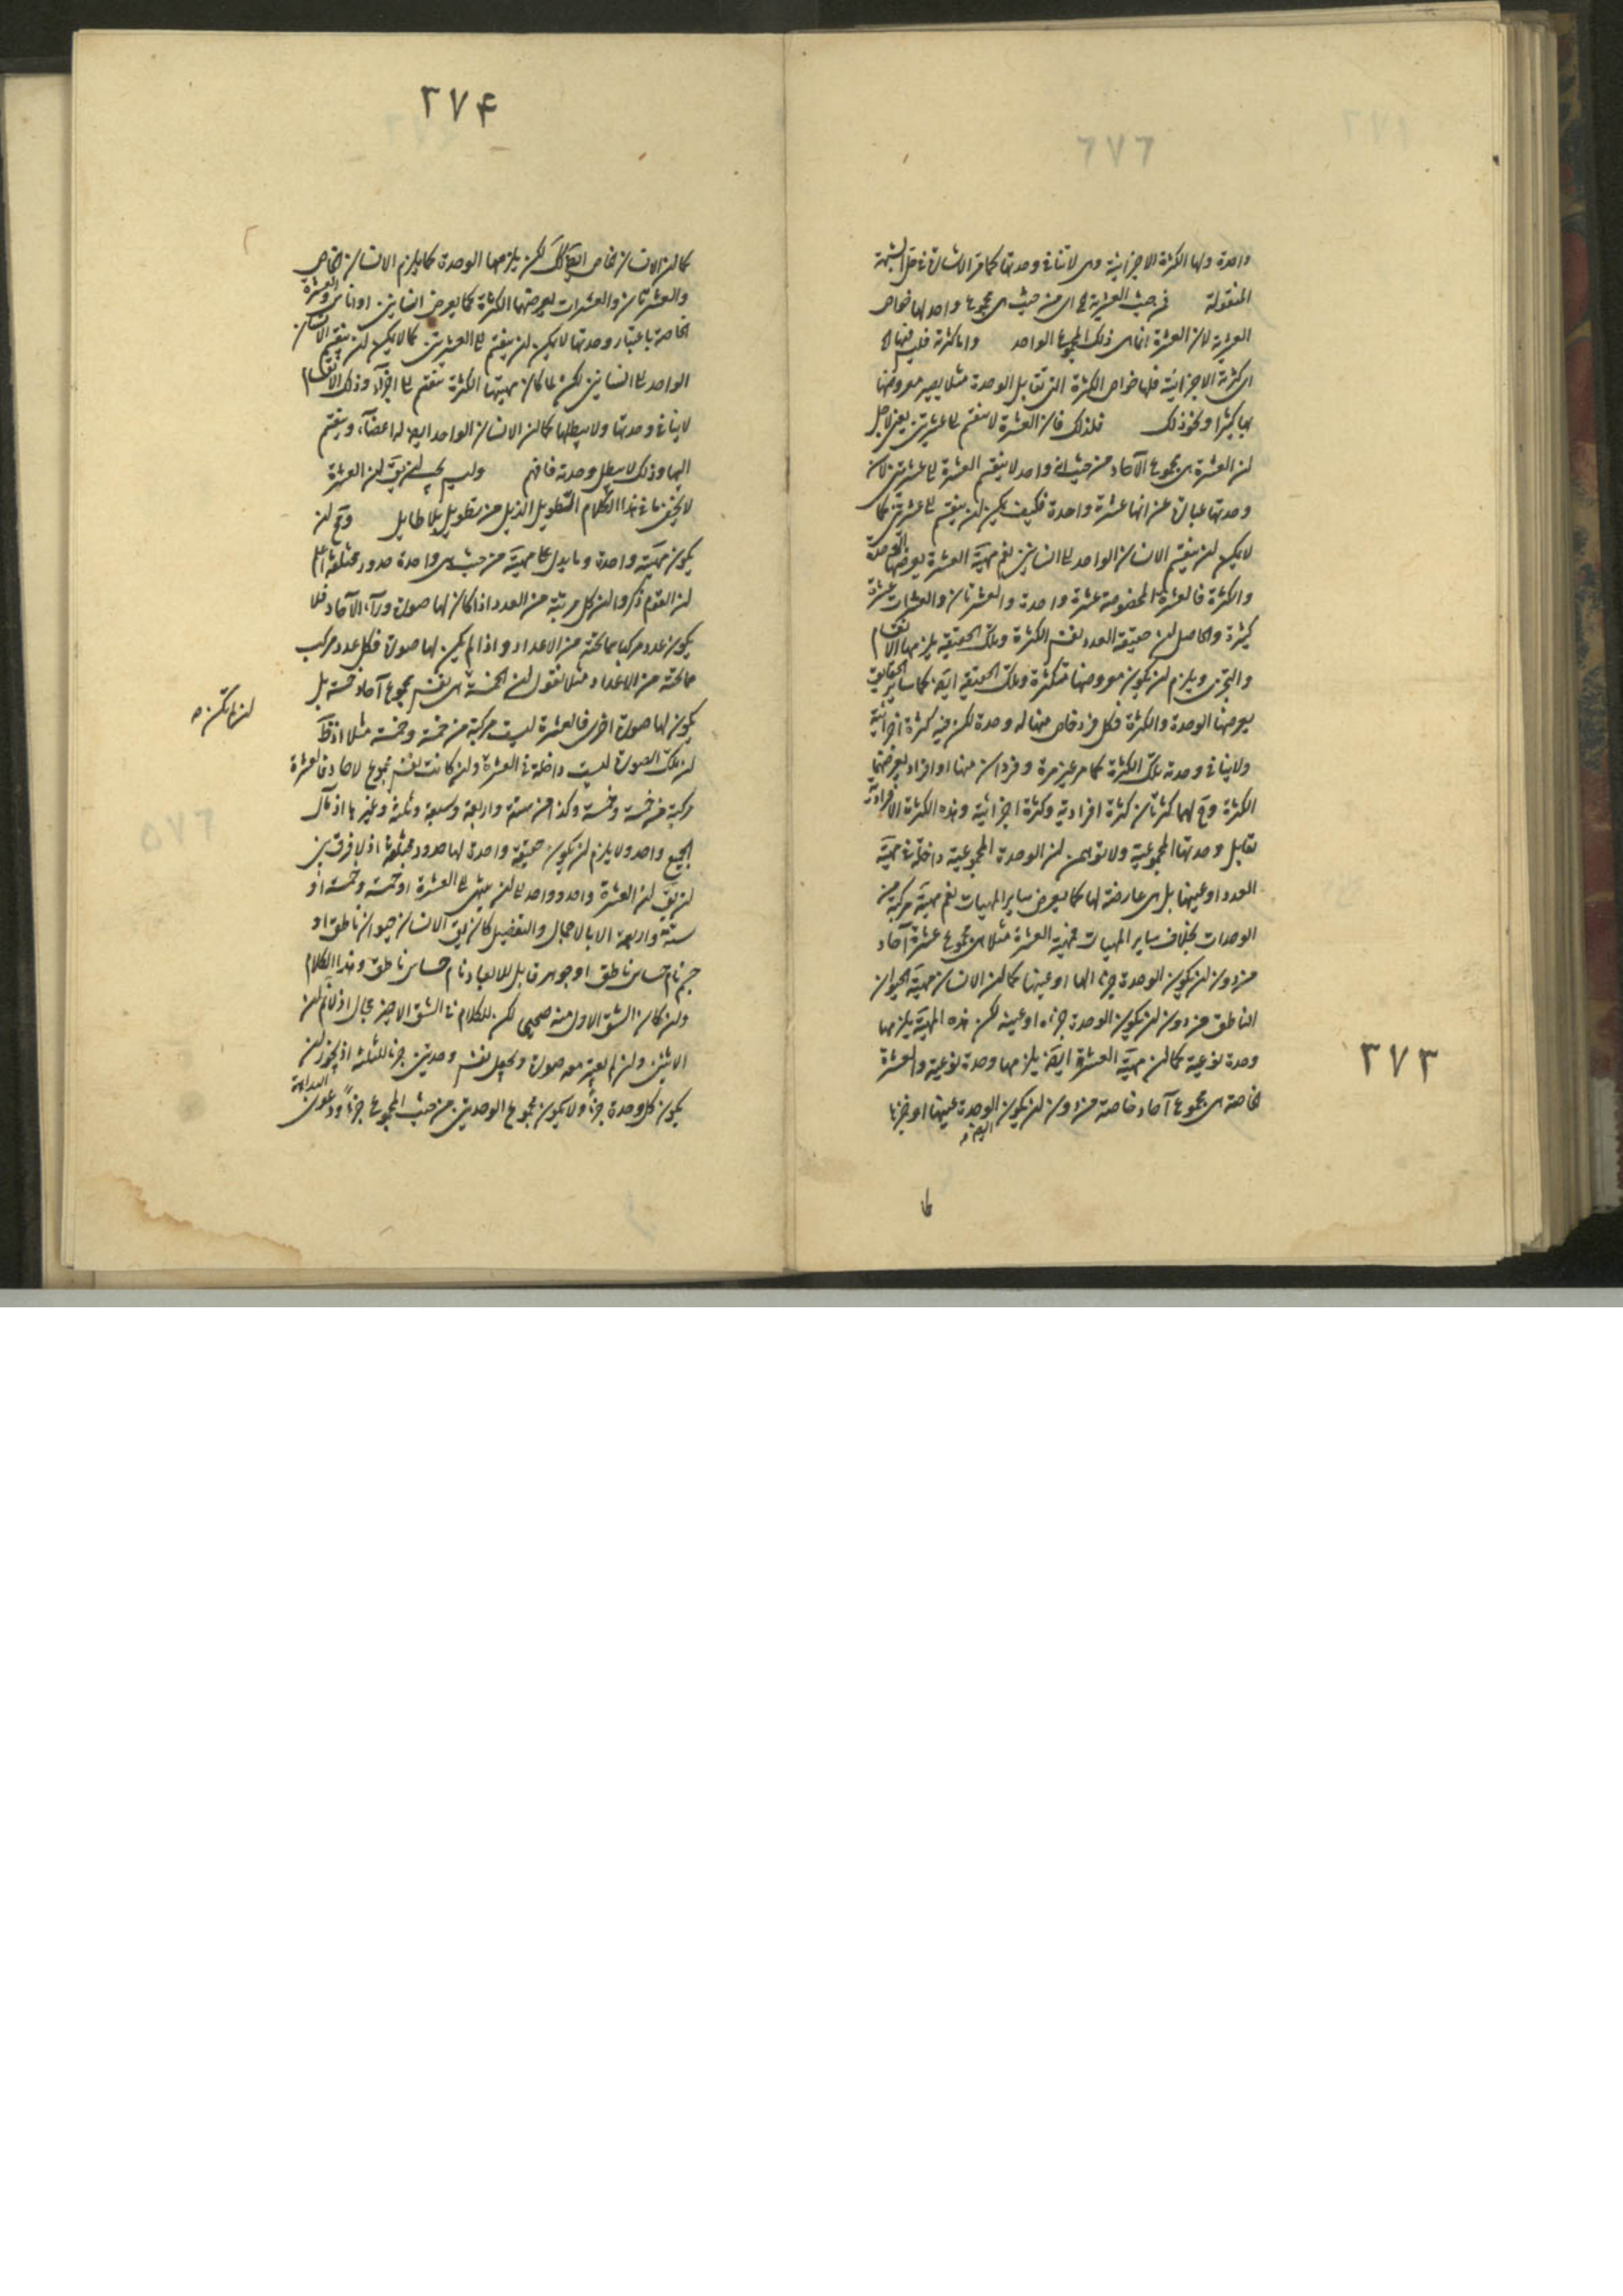 واحدة ولها الكثرة الاجزائية وهى لا تنافى وحدتها كما مر الاشارة فى حل الشبهة
المنقولة فمن حيث العشرية اى من حيث هى مجموع واحد لها خواص
العشرية لان العشرة انما هى ذلك المجموع الواحد واما كثرته فليس فيها
اى كثرته الاجزائية فلها خواص الكثرة التى تقابل الوحدة مثلا يصير معروضها
بها كثيرا ونحو ذلك فلذلك فان العشرة لا ينقسم الى عشرتين يعنى لاجل
ان العشرة هى مجموع الآحاد من حيث انه واحد لا ينقسم العشرة الى عشرتين لان
وحدتها عبارة عن انها عشرة واحدة فكيف يمكن ان ينقسم الى عشرتين كما
لا يمكن ان ينقسم الانسان الواحد الى انسانين نعم مهية العشرة يعرضها الوحدة
والكثرة فالعشرة المخصوصة عشرة واحدة والعشرتان والعشرات عشرة
كثيرة والحاصل ان حقيقة العدد نفس الكثرة وتلك الحقيقة يلزمها الانقسام
والتجزى ويلزم ان يكون معروضها متكثرة وتلك الحقيقة ايضا كما ساير الحقايق
يعرضها الوحدة والكثرة فكل فرد خاص منها له وحدة لكن فيه كثرة اجزائية
ولا ينافى وحدته تلك الكثرة كما مر غير مرة وفردان منها او افراد يعرضهما
الكثرة وح لهما كثرتان كثرة افرادية وكثرة اجزائية وهذه الكثرة الافرادية
تقابل وحدتها المجموعية ولا توهمن ان الوحدة المجموعية داخلة فى مهية
العدد او عينها بل هى عارضة لها كما يعرض ساير المهيات نعم مهية مركبة من
الوحدات بخلاف ساير المهيات فمهية العشرة مثلا هى مجموع عشرة آحاد
من دون ان يكون الوحدة جزءا لها او عينها كما ان الانسان مهية الحيوان
الناطق من دون ان يكون الوحدة جزءه او عينه لكن هذه المهية يلزمها
وحدة نوعية كما ان مهية العشرة ايضا يلزمها وحدة نوعية والعشرة
الخاصة هى مجموع آحاد خاصة من دون ان يكون الوحدة عينها او جزءها
كما
٣٧٣
٢٧۴
كما ان الانسان الخاص ايضا كك لكن يلزمها الوحدة كما يلزم الانسان الخاص
والعشرتان والعشرات يعرضهما الكثرة كما يعرض انسانين او اناس والعشرة
الخاصة باعتبار وحدتها لا يمكن ان ينقسم الى العشرتين كما لا يمكن ان ينقسم الانسان
الواحد الى انسانين لكن لما كان مهيتها الكثرة ينقسم الى اجزاء وذلك الانقسام
لا ينافى وحدتها ولا يبطلها كما ان الانسان الواحد ايضا له اعضاء وينقسم
اليها وذلك لا يبطل وحدته فافهم وليس يجب ان يق ان العشرة
لا يخفى ما فى هذا الكلام الطويل الذيل من تطويل بلا طايل وح ان
يكون مهية واحدة وما يدل على مهية من حيث هى واحدة حدود مختلفة اعلم
ان القوم ذكروا ان كل مرتبة من العدد اذا كان لها صورة وراء الآحاد فلا
يكون عدد مركبا مما تحته من الاعداد واذا لم يكن لها صورة فكل عدد مركب
مما تحته من الاعداد مثلا نقول ان الخمسة هى نفس مجموع آحاد خمسة بل
يكون لها صورة اخرى فالعشرة ليست مركبة من خمسة وخمسة مثلا اذ ظ
ان تلك الصورة ليست داخلة فى العشرة وان كانت نفس مجموع الاحاد فالعشرة
مركبة من خمسة وخمسة وكذا من ستة واربعة وسبعة وثلثة وغيرها اذ مآل
الجميع واحد ولا يلزم ان يكون حقيقة واحدة لها حدود مختلفة اذ لا فرق بين
ان يق ان العشرة واحد وواحد الى ان ينتهى الى العشرة او خمسة وخمسة او
ستة واربعة الا بالاجمال والتفصيل كان يق الانسان حيوان ناطق او
جسم نام حساس ناطق او جوهر قابل للابعاد نام حساس ناطق وهذا الكلام
وان كان الشق الاول منه صحيحا لكن للكلام فى الشق الاخير مجال اذ لا نم ان
الاثنين وان لم يعتبر معه صورة وجعل نفس وحدتين جزءا للثلثة اذ يجوز ان
يكون كل وحدة جزءا ولا يكون مجموع الوحدتين من حيث المجموع جزءا ودعوى البداهة